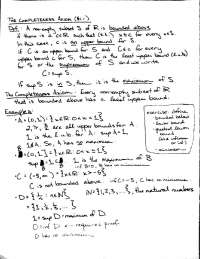 The Completeness Axiom
Def: A nonempty subset S of ℝ is bounded above
if there is a c∈ℝ such that x≤c for every x∈S.
In this case, c is an upper bound for S.
If c is an upper bound for S and c≤d for every
upper bound d for S, then c is the least upper bound
of S or the supremum of S and we write
c = sup S
If sup S is in S, then it is the maximum of S
The Completeness Axiom: Every nonempty subset of ℝ
that is bounded above has a least upper bound.
Examples
A = (0,1) = {x∈ℝ: 0<x<1}
are all upper bounds for A
1 is the l.u.b. for A: sup A = 1
1∉A. So, A has no maximum
B = (0,1] = {x∈ℝ: 0<x≤1}
sup B = 1 1 is the maximum of B
C = (-5,∞) = {x∈ℝ: x>-5}
C is not bounded above.
D = {1/n : n∈ℕ} ℕ = {1,2,3,...}, the natural numbers
1 = sup D = maximum of D
0 = inf D requires proof
D has no minimum
exercise: define
bounded below
lower bound
greatest lower
bound
minimum